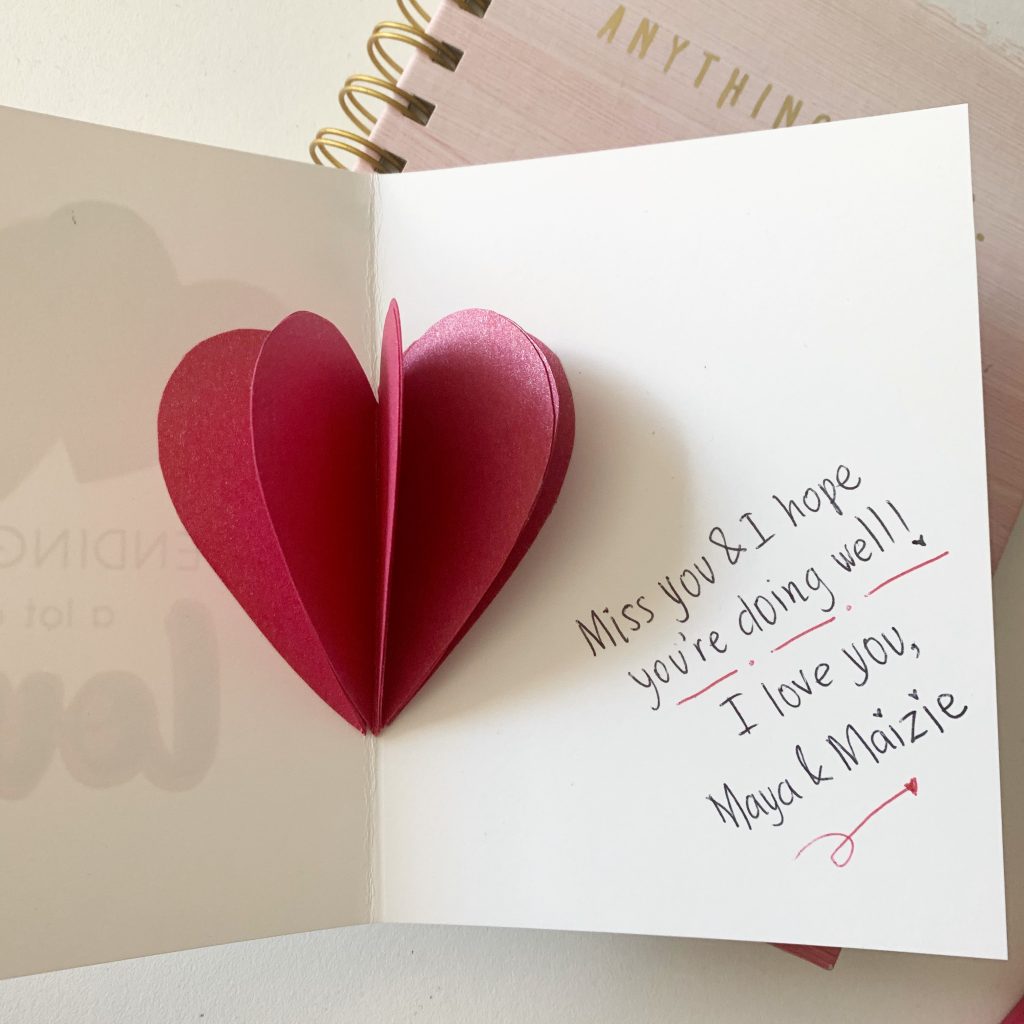 ANYTHING
Miss you & I hope
you're doing well!
I love you,
Maya & Maizie
ENDING
a lot
love